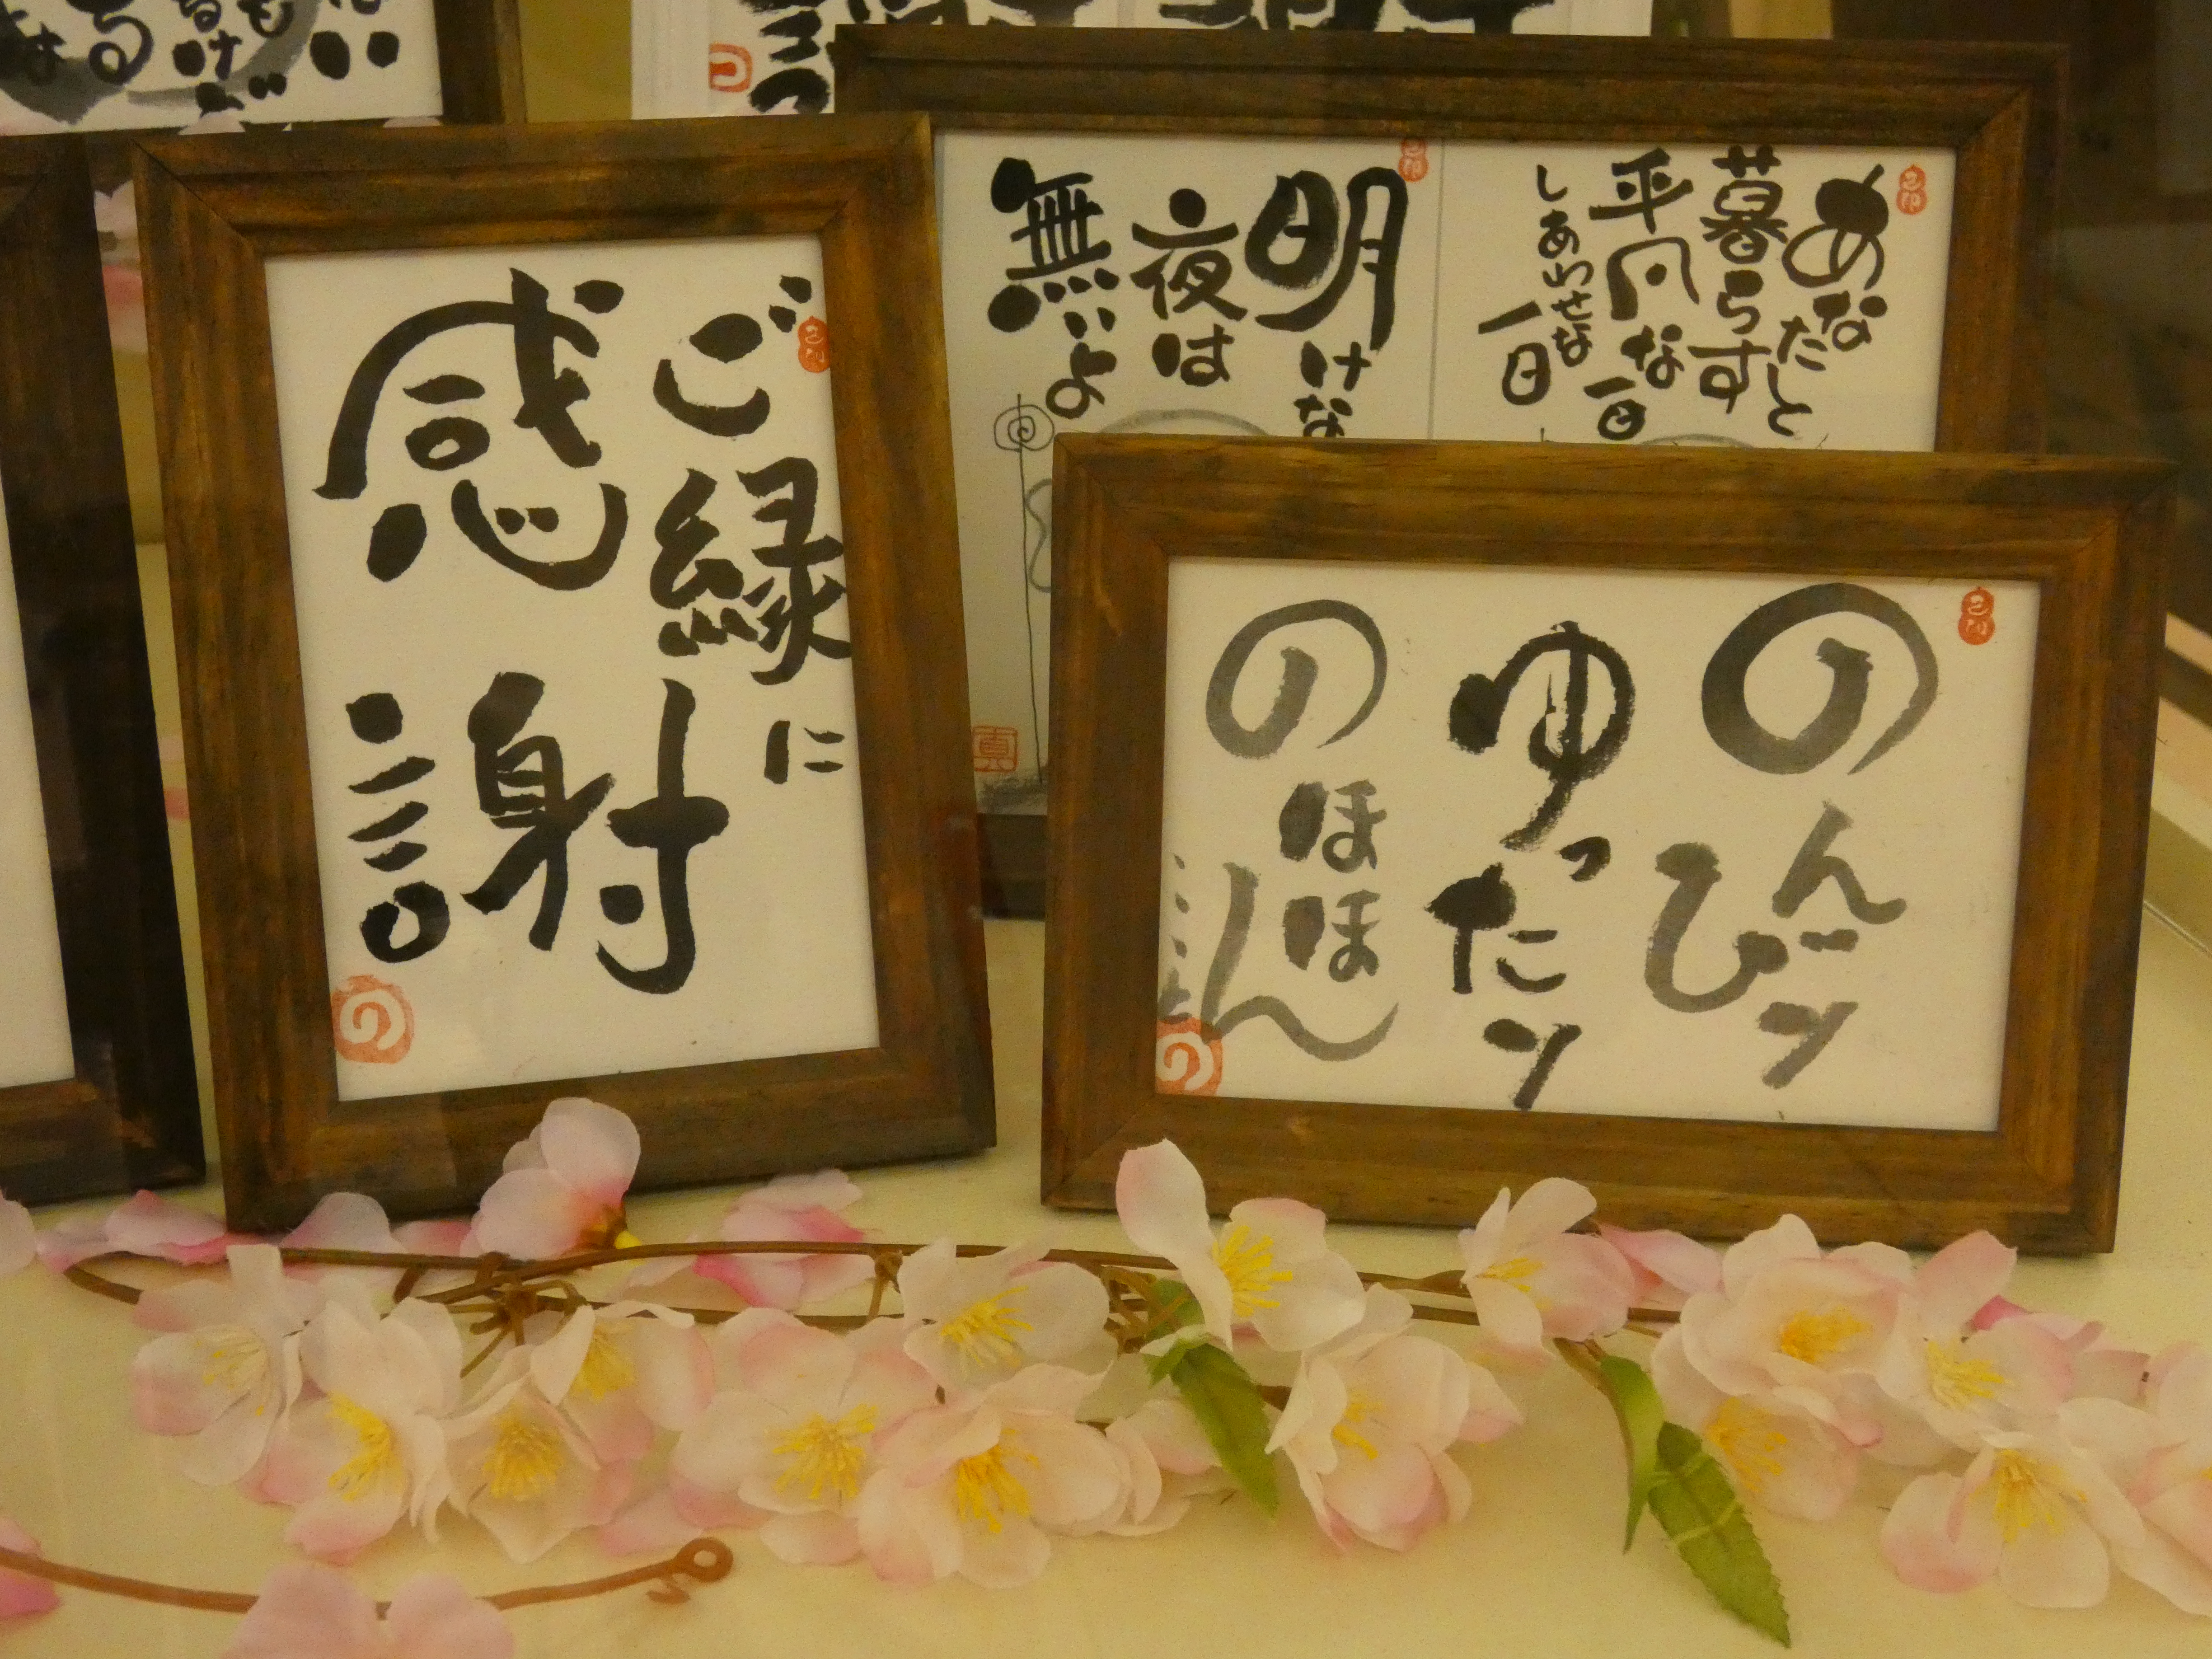 ご縁に
感謝
のんびり
ゆったり
のほほん
あなたと
暮らす
平凡な一日
しあわせな
一日
明けな
夜は
無いよ